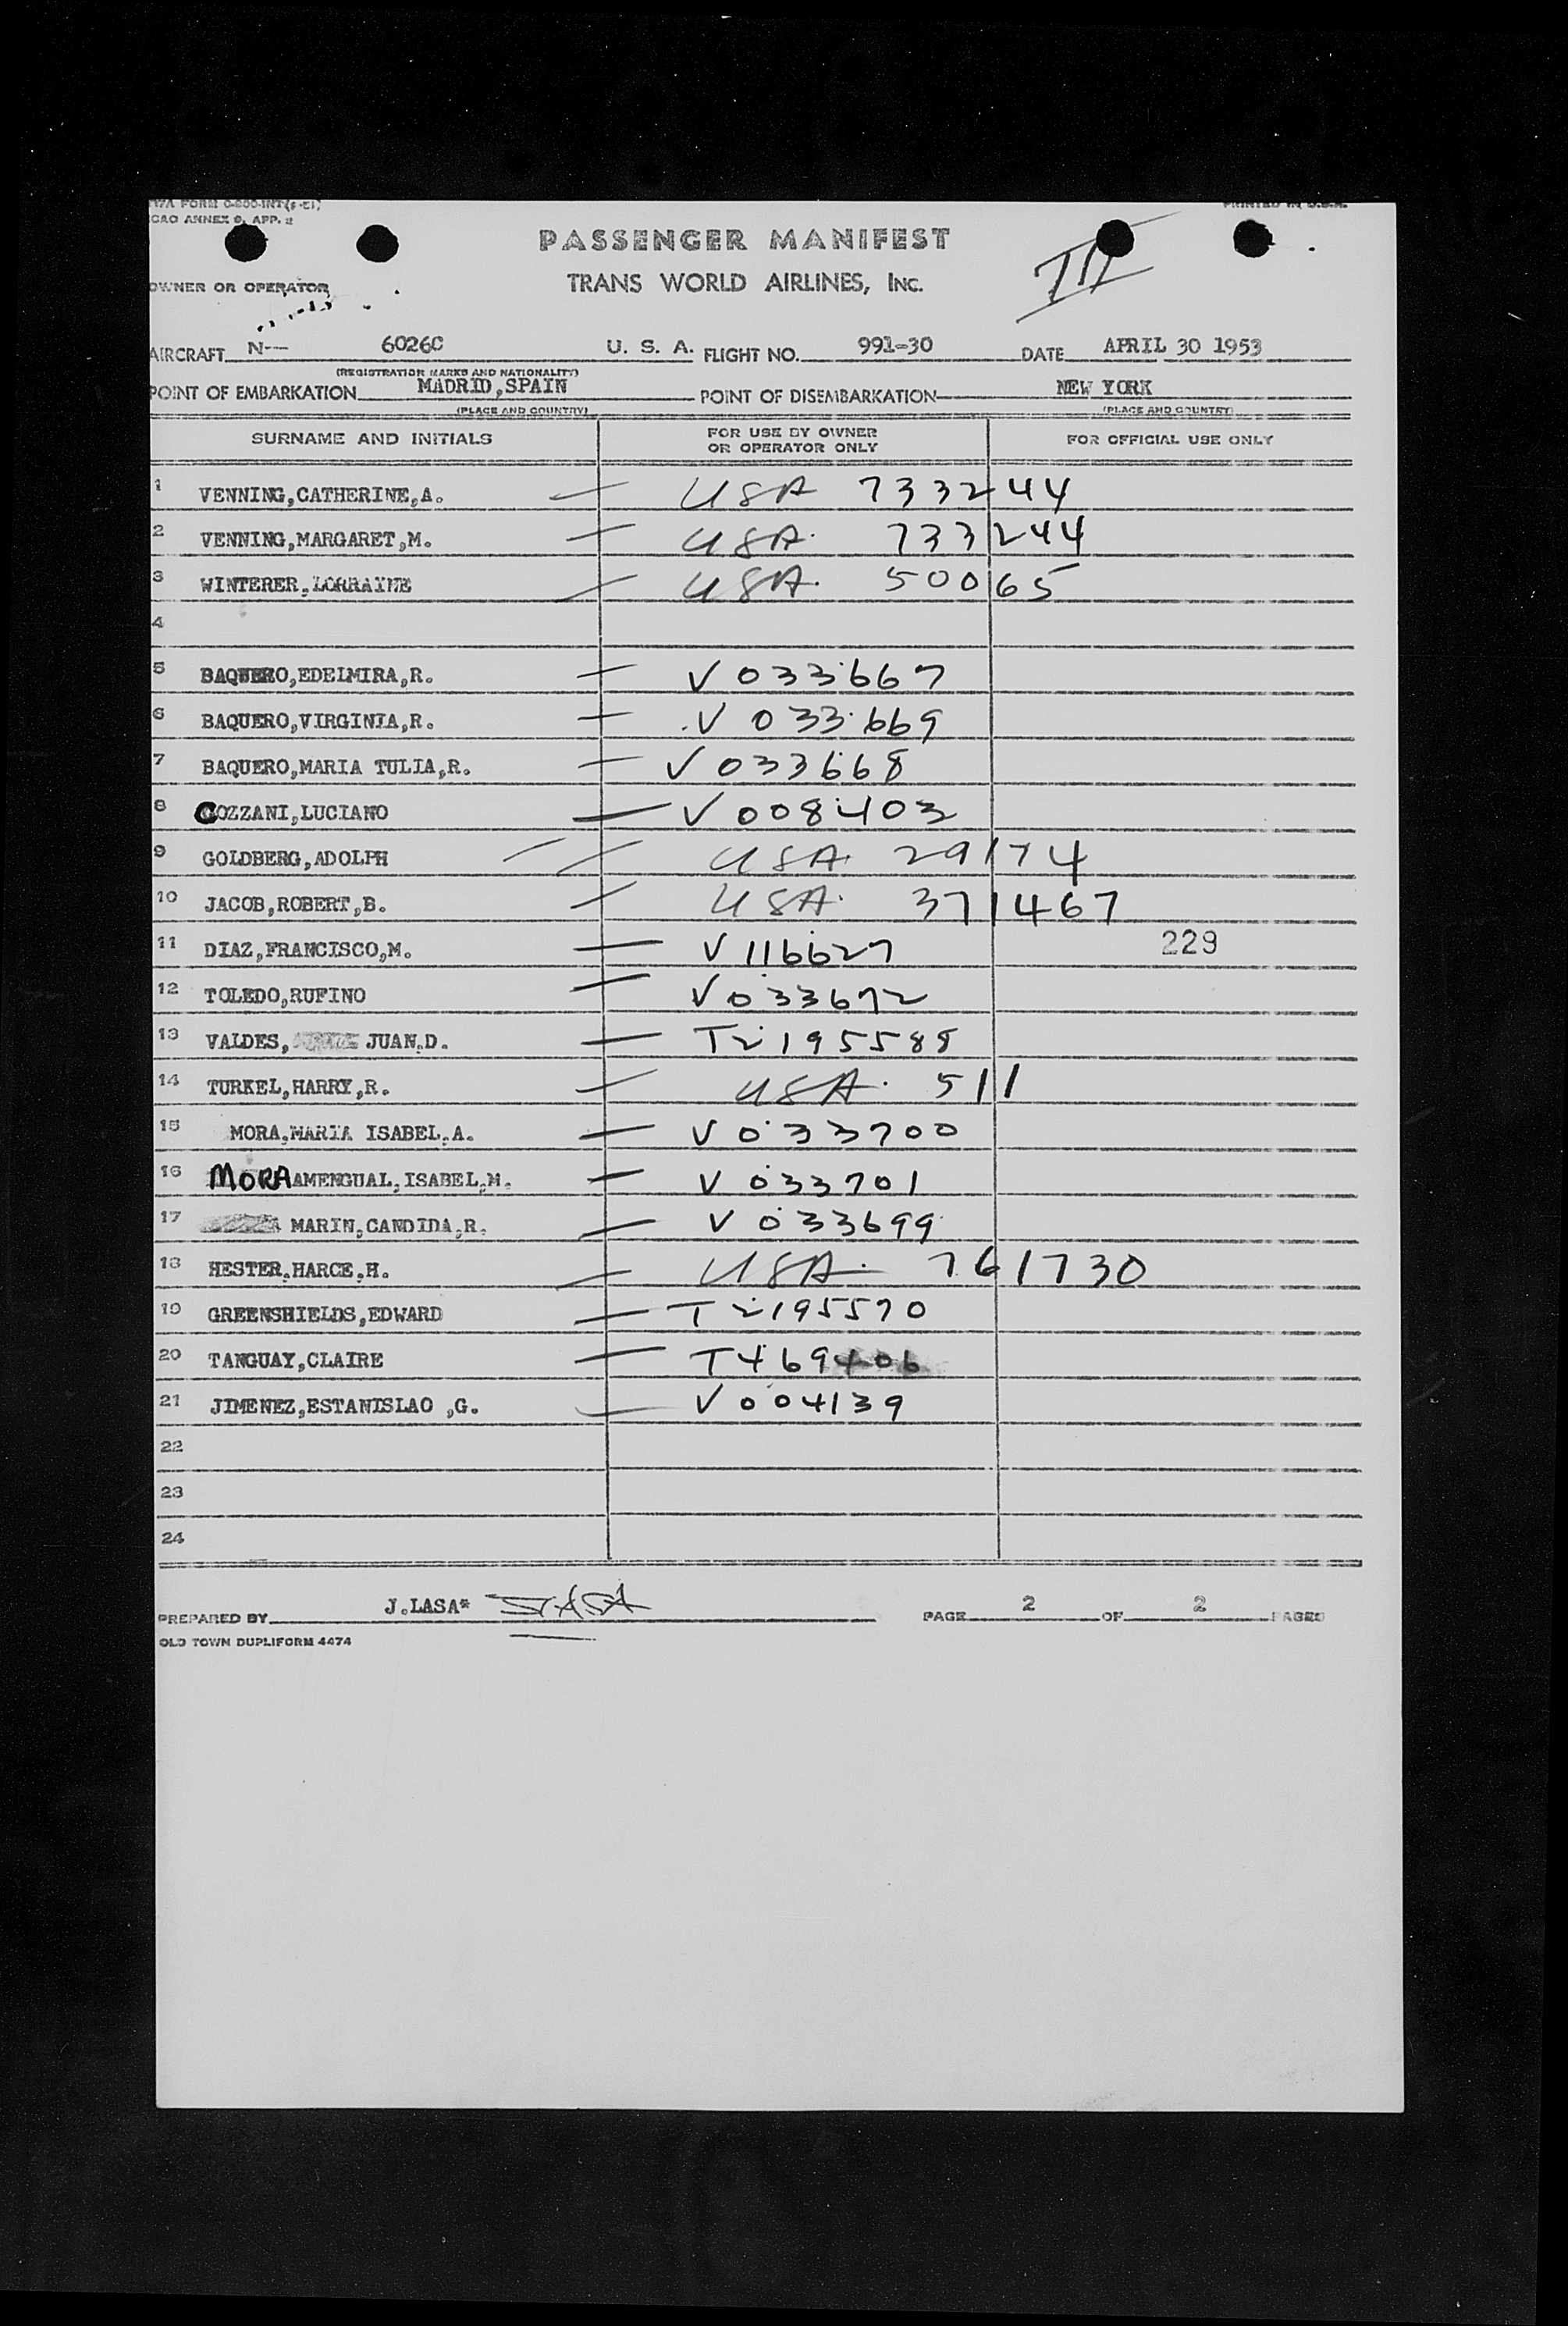 TWA FORM 0-800-INT(6-51)
ICAO ANNEX 9, APP. 2
PRINTED IN U.S.A.
PASSENGER MANIFEST
TRANS WORLD AIRLINES, INC.
III
OWNER OR OPERATOR
AIRCRAFT N-- 6026C U. S. A. FLIGHT NO. 991-30 DATE APRIL 30 1953
(REGISTRATION MARKS AND NATIONALITY)
POINT OF EMBARKATION MADRID,SPAIN POINT OF DISEMBARKATION NEW YORK
(PLACE AND COUNTRY) (PLACE AND COUNTRY)
SURNAME AND INITIALS FOR USE BY OWNER OR OPERATOR ONLY FOR OFFICIAL USE ONLY
1 VENNING,CATHERINE,A. — USA 733244
2 VENNING,MARGARET,M. — USA. 733244
3 WINTERER,LORRAINE — USA. 50065
4
5 BAQUERO,EDELMIRA,R. — V 033667
6 BAQUERO,VIRGINIA,R. — V 033669
7 BAQUERO,MARIA TULIA,R. — V 033668
8 COZZANI,LUCIANO — V 008403
9 GOLDBERG,ADOLPH — USA. 29174
10 JACOB,ROBERT,B. — USA. 371467
11 DIAZ,FRANCISCO,M. — V 116627 229
12 TOLEDO,RUFINO — V 033672
13 VALDES, JUAN,D. — T2195588
14 TURKEL,HARRY,R. — USA. 511
15 MORA,MARIA ISABEL,A. — V 033700
16 MORA AMENGUAL,ISABEL,M. — V 033701
17 MARIN,CANDIDA,R. — V 033699
18 HESTER,HARCE,H. — USA. 761730
19 GREENSHIELDS,EDWARD — T2195570
20 TANGUAY,CLAIRE — T469406
21 JIMENEZ,ESTANISLAO ,G. — V 004139
22
23
24
PREPARED BY J.LASA* LASA PAGE 2 OF 2 PAGES
OLD TOWN DUPLIFORM 4474